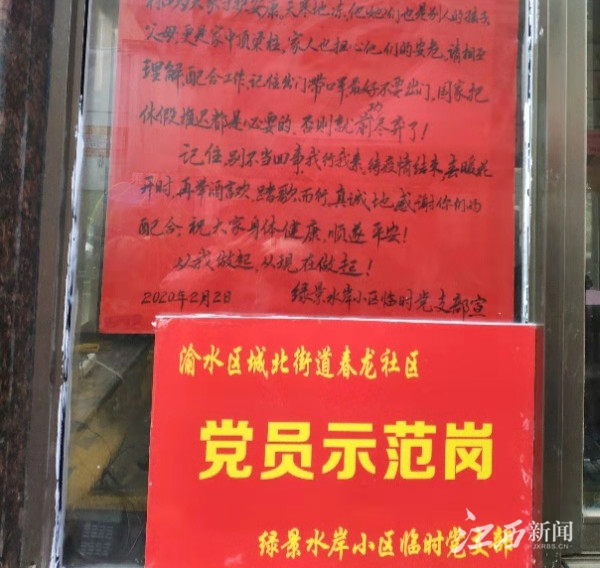 康,天寒地冻,他她们也是别人的孩子
父母,更是家中顶梁柱,家人也担心他们的安危,请相互
理解,配合工作,记住出门带口罩,最好不要出门,国家把
休假推迟都是必要的,否则就前功尽弃了!
记住,别不当回事,我行我素,待疫情结束,春暖花
开时,再举酒言欢,踏歌而行,真诚地感谢你们的
配合,祝大家身体健康,顺遂平安!
从我做起,从现在做起!
2020年2月2日 绿景水岸小区临时党支部宣
渝水区城北街道春龙社区
党员示范岗
绿景水岸小区临时党支部
江西新闻
JXRBS.CN